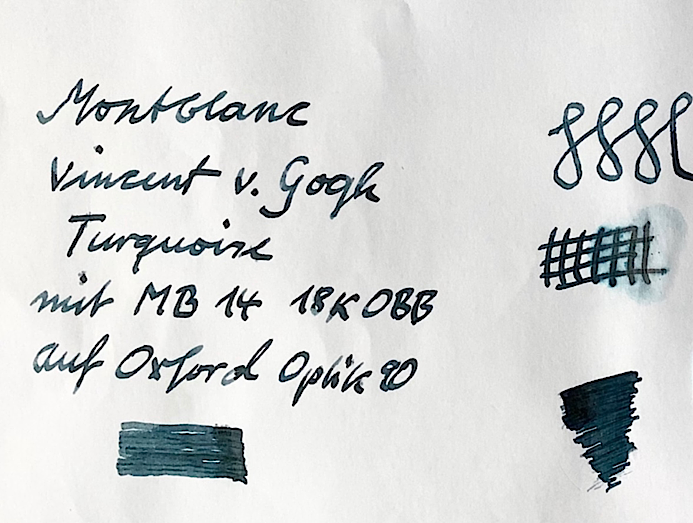 Montblanc
Vincent v. Gogh
Turquoise
mit MB 14 18K OBB
auf Oxford Optik 90